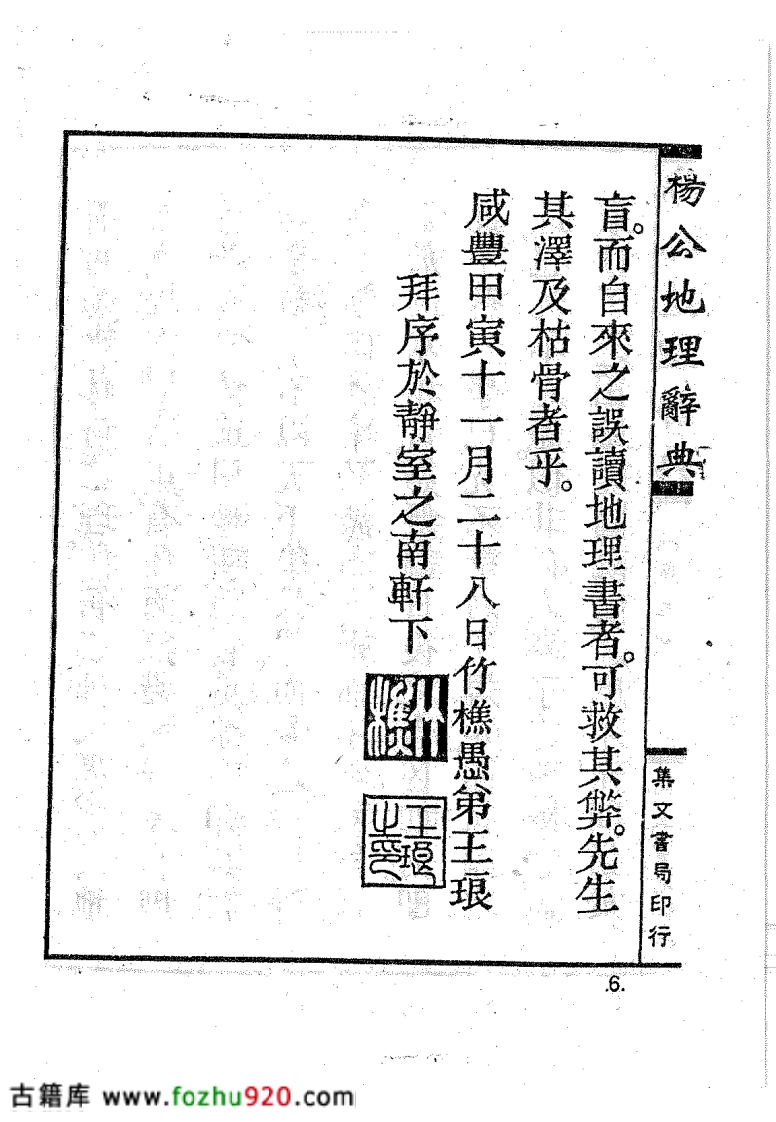 楊公地理辭典
盲。而自來之誤讀地理書者。可救其弊。先生
其澤及枯骨者乎。
咸豐甲寅十一月二十八日竹樵愚弟王琅
拜序於靜室之南軒下
竹樵
王琅之印
集文書局印行
.6.
古籍库 www.fozhu920.com